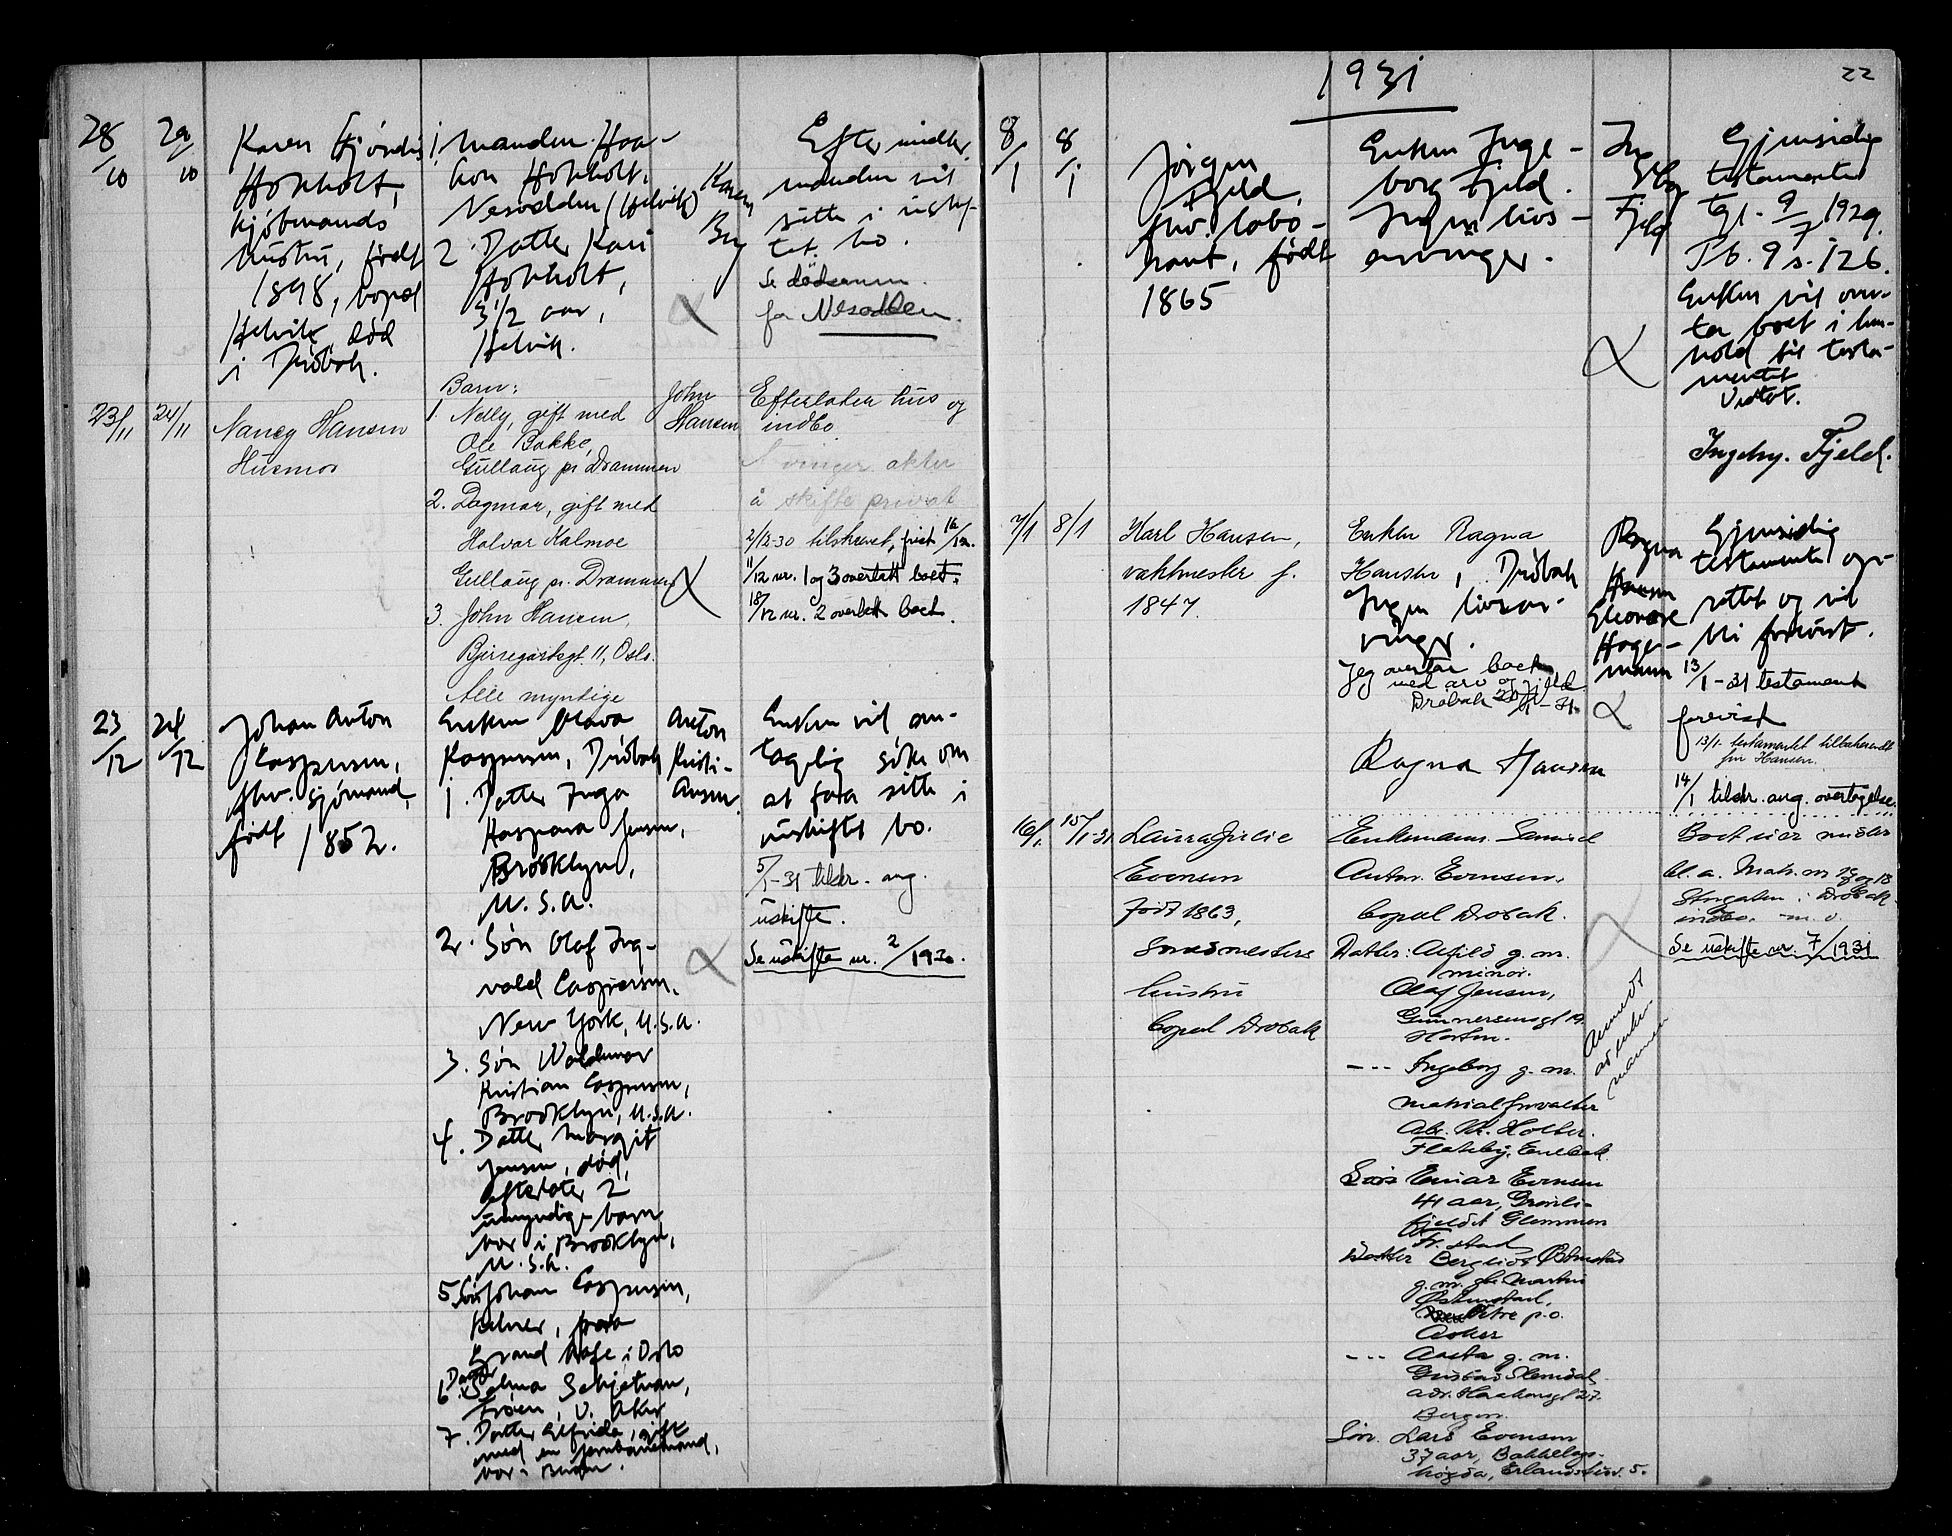 28/10
29/10
Karen Hjørdis
Hokholt,
kjöbmands
hustru, født
1898, bopæl
Helvik, død
i Drøbak.
1. Manden Haa-
kon Hokholt,
Nesodden (Helvik)
2. Datter Kari
Hokholt,
3 1/2 aar,
Helvik.
Karen
Efter
manden vil
sitte i uskif-
tet bo.
Se
for Nesodden.
23/11
24/11
Nancy Hansen
Husmor
Barn:
1. Nelly, gift med
Ole Bakke,
Gullaug pr. Drammen
2. Dagmar, gift med
Halvar Kalmoe
Gullaug pr. Drammen
3. John Hansen,
Bjerregaardsgt. 11, Oslo.
Alle myndige
John
Hansen
Efterlater hus og
indbo
Arvinger akter
å skifte privat
2/12-30 tilskrevet, frist 16/12.
11/12 nr. 1 og 3 overtatt boet.
18/12 nr. 2 overtatt boet.
23/12
24/12
Johan Anton
Caspersen,
fhv. sjömand,
født 1852.
Enken Olava
Kaspersen, Drøbak
1. Datter Inga
Kaspara Jensen,
Brooklyn,
U.S.A.
2. Søn Olaf Ing-
vald Caspersen,
New York, U.S.A.
3. Søn Waldemar
Kristian Caspersen,
Brooklyn, U.S.A.
4. Datter Margit
Jensen, død,
efterlater 2
umyndige barn
bor i Brooklyn,
U.S.A.
5. Søn Johan Caspersen,
kelner, paa
Grand Kafe i Oslo
6. Datter Selma Schjetman,
Frøen, V. Aker
7. Datter Elfrida, gift
med en jernbanemand,
bor i
Anton
Kristi-
ansen.
Enken vil an-
tagelig söke om
at faa sitte i
uskiftet bo.
5/1-31 tilskr. ang.
uskifte.
Se uskifte nr. 2/1930.
1931
22
8/1
8/1
Jörgen
Fjeld,
fhv.
født
1865
Enken Inge-
borg Fjeld.
Ingen livs-
arvinger.
Ingebg
Fjeld
Gjensidig
testamente
tgl. 9/7 1929.
Pb. 9 s. 126.
Enken vil over-
ta boet i hen-
hold til testa-
mentet
Vedtat.
Ingebg. Fjeld.
7/1
8/1
Karl Hansen,
vaktmester f.
1847.
Enken Ragna
Hansen, Drøbak
Ingen livsar-
vinger.
Jeg overtar boet
med arv og gjeld
Drøbak 20/1-31.
Ragna Hansen
Ragna
Hansen
Eleonore
Hage-
mann
Gjensidig
testamente op-
rettet og vil
bli forevist.
13/1-31 testament
forevist
13/1. testamentet tilbakesendt
fru Hansen.
14/1 tilskr. ang. overtagelse.
16/1
15/1-31
Laura Julie
Evensen
Født 1863,
Smedmesters
hustru
bopæl Drøbak
Enkemann. Samuel
Anton. Evensen,
bopæl Drøbak.
Datter: Alfild g. m.
minør.
Olaf Jensen,
Gunnersensgt 19.
Horten.
--- Ingeborg g. m.
matrialforvalter
Adr. Kr. Holter.
Flateby, Enebak.
Søn Einar Evensen
41 aar,
fjeldet Glemmen
Fr. stad
Datter Bergliot Østenstad
g. m. Martin
Østenstad,
Heltre p.o.
Asker
--- Aasta g. m.
Gustav
adr. Haakonsgt 27.
Bergen.
Søn. Lars Evensen
37 aar, Bakkehaug-
høgda, 5.
Anmeldt
av enke-
mannen
Boet eier midler
bl. a. Matr. nr 19 og 18
Storgaten i Drøbak
indbo. m. v.
Se uskifte nr. 7/1931